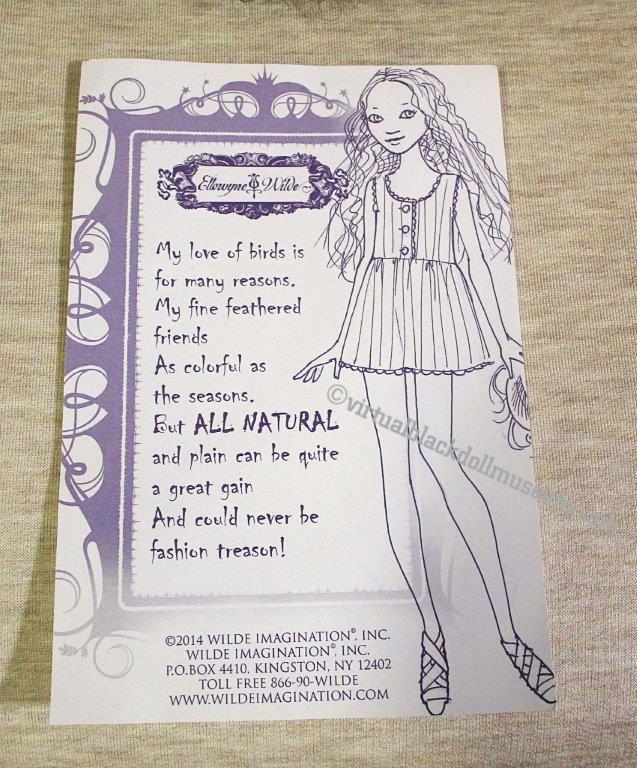 Ellowyne Wilde
My love of birds is
for many reasons.
My fine feathered
friends
As colorful as
the seasons.
But ALL NATURAL
and plain can be quite
a great gain
And could never be
fashion treason!
©2014 WILDE IMAGINATION®, INC.
WILDE IMAGINATION®, INC.
P.O.BOX 4410, KINGSTON, NY 12402
TOLL FREE 866-90-WILDE
WWW.WILDEIMAGINATION.COM